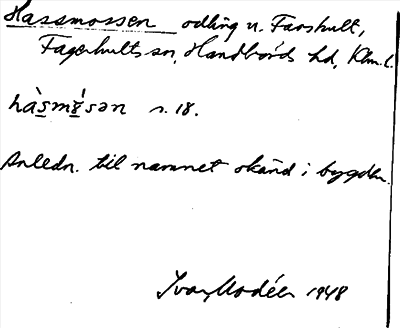 Hassmossen odling u. Farshult,
Fagerhults sn, Handbörds hd, Klm. l.
hàsmósən s. 18.
Anledn. till namnet okänd i bygden.
Ivar Modéer 1948